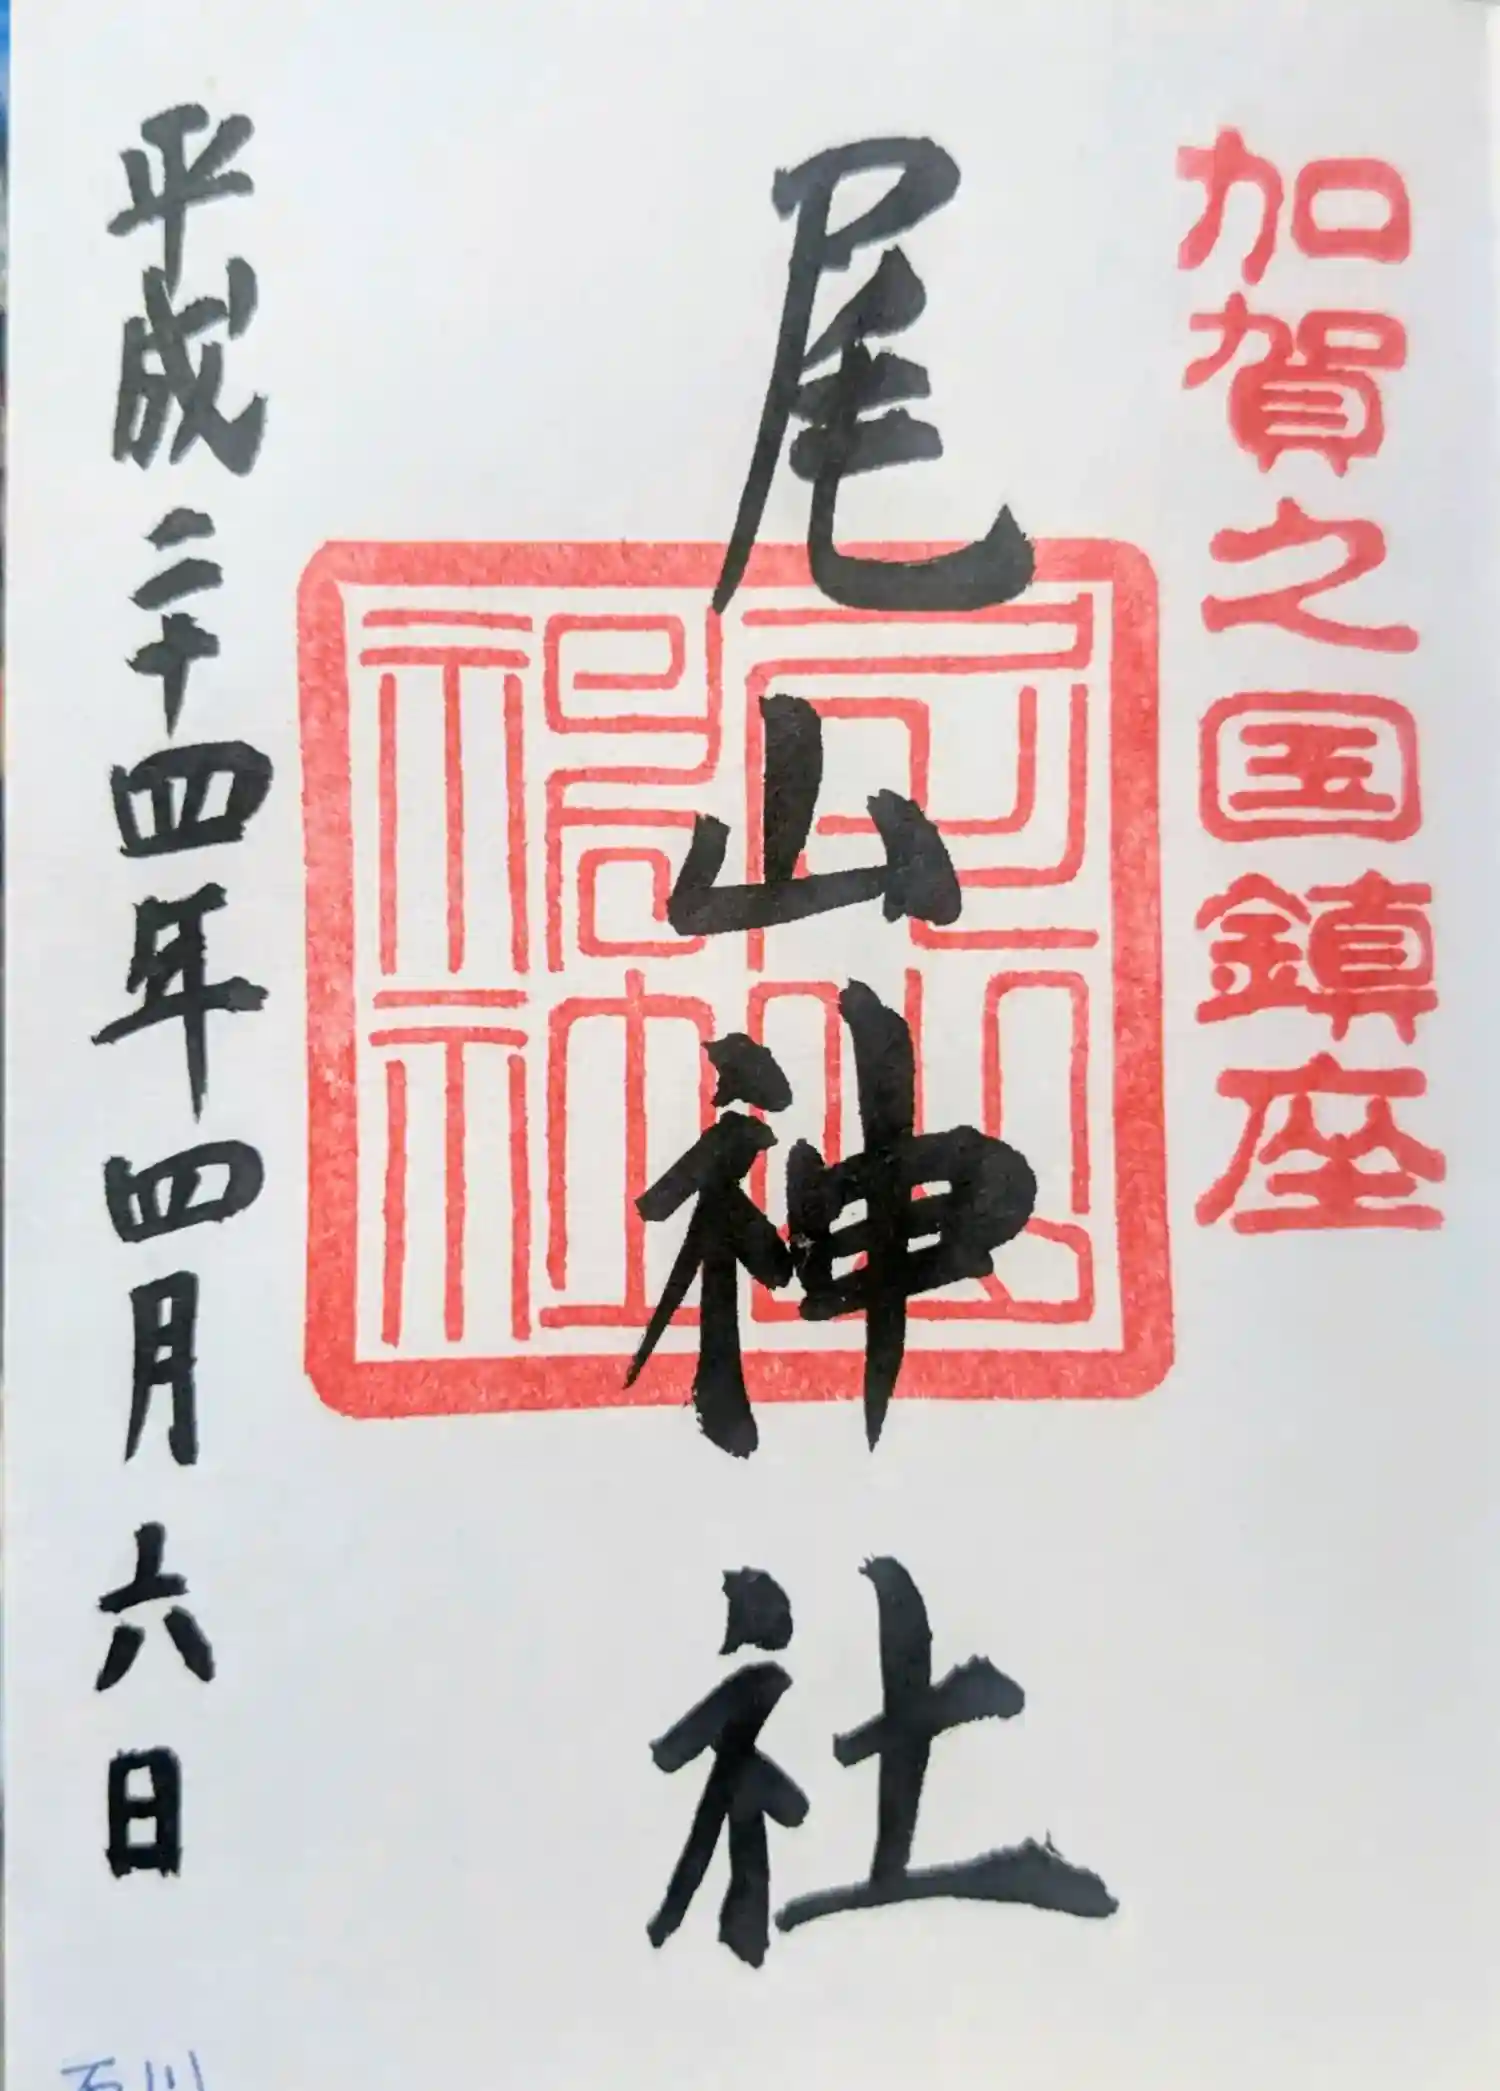 加賀之国鎮座
尾山神社
尾山神社
平成二十四年四月六日
石川